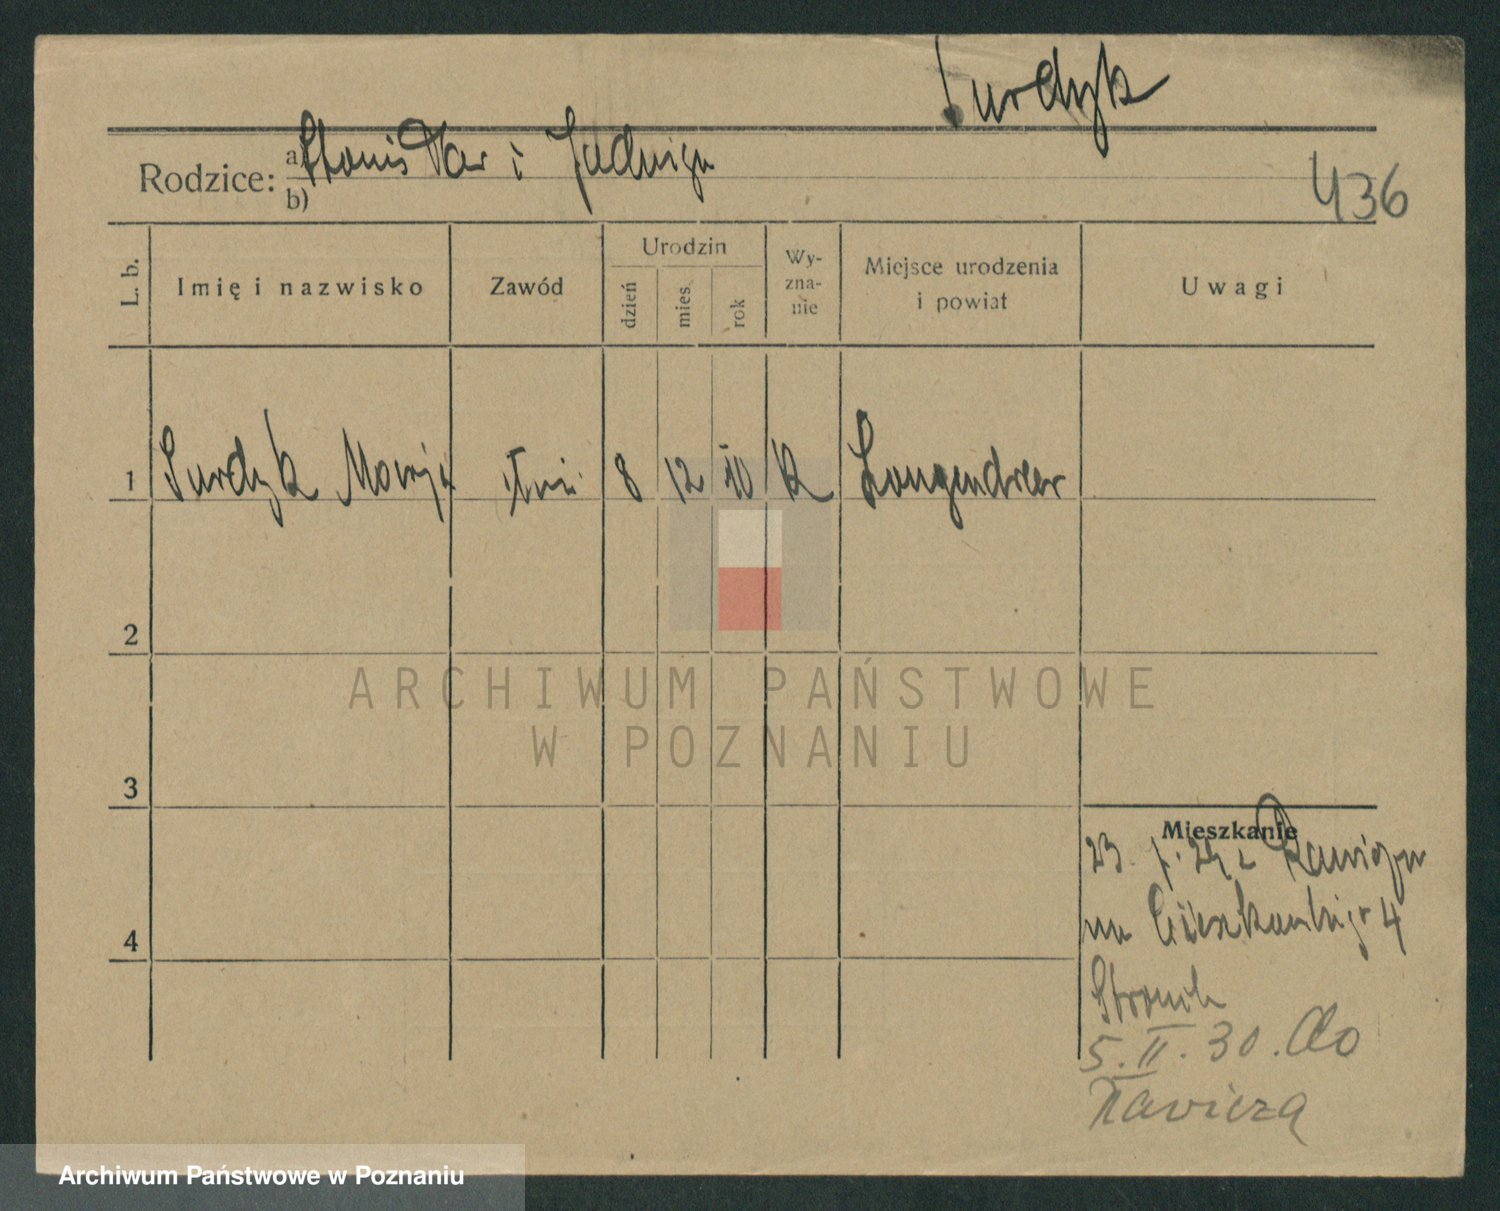 Surdyk
Rodzice: a) Stanisław i Jadwiga
b)
436
L. b.
Imię i nazwisko
Zawód
Urodzin
dzień
mies.
rok
Wy-
zna-
nie
Miejsce urodzenia
i powiat
Uwagi
1 Surdyk Marja 8 12 10 k Langendreer
2
ARCHIWUM PAŃSTWOWE
W POZNANIU
3
Mieszkanie
23. 29 z
na 4
4
5.II.30. do
Rawicza
Archiwum Państwowe w Poznaniu